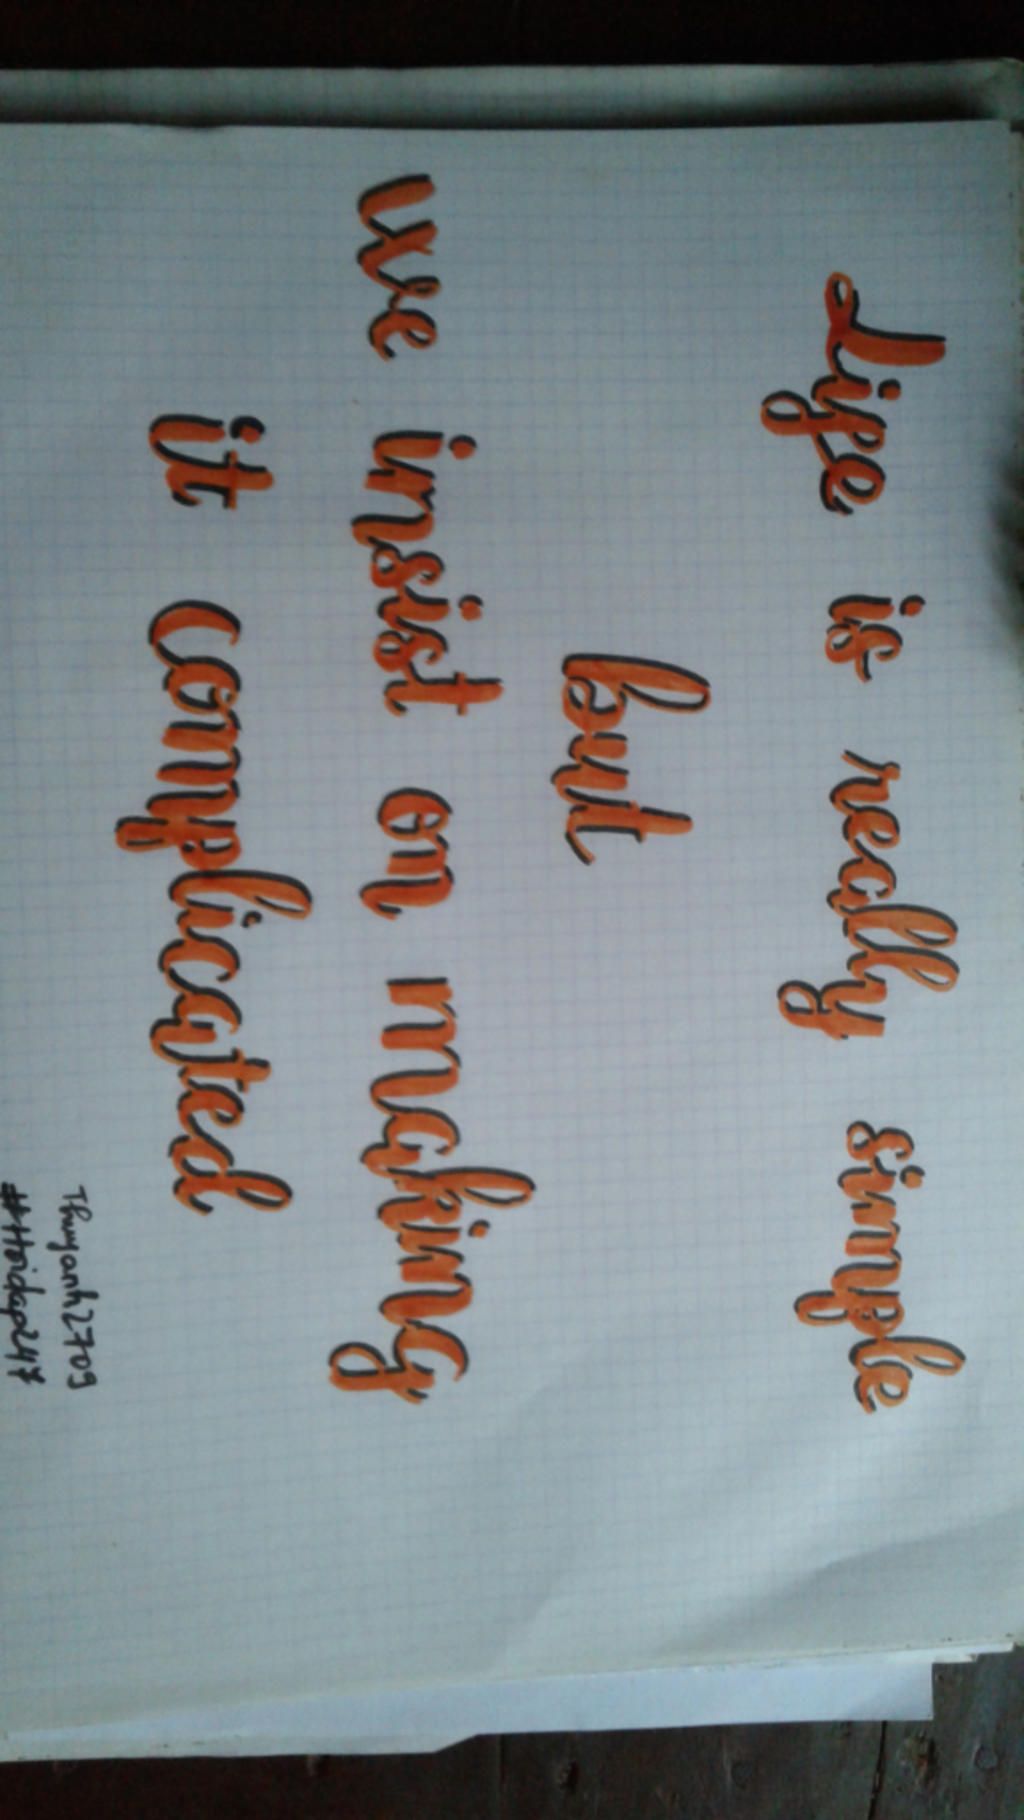 Life is really simple
but
we insist on making
it complicated
Thuyanh2709
#Hoidap247